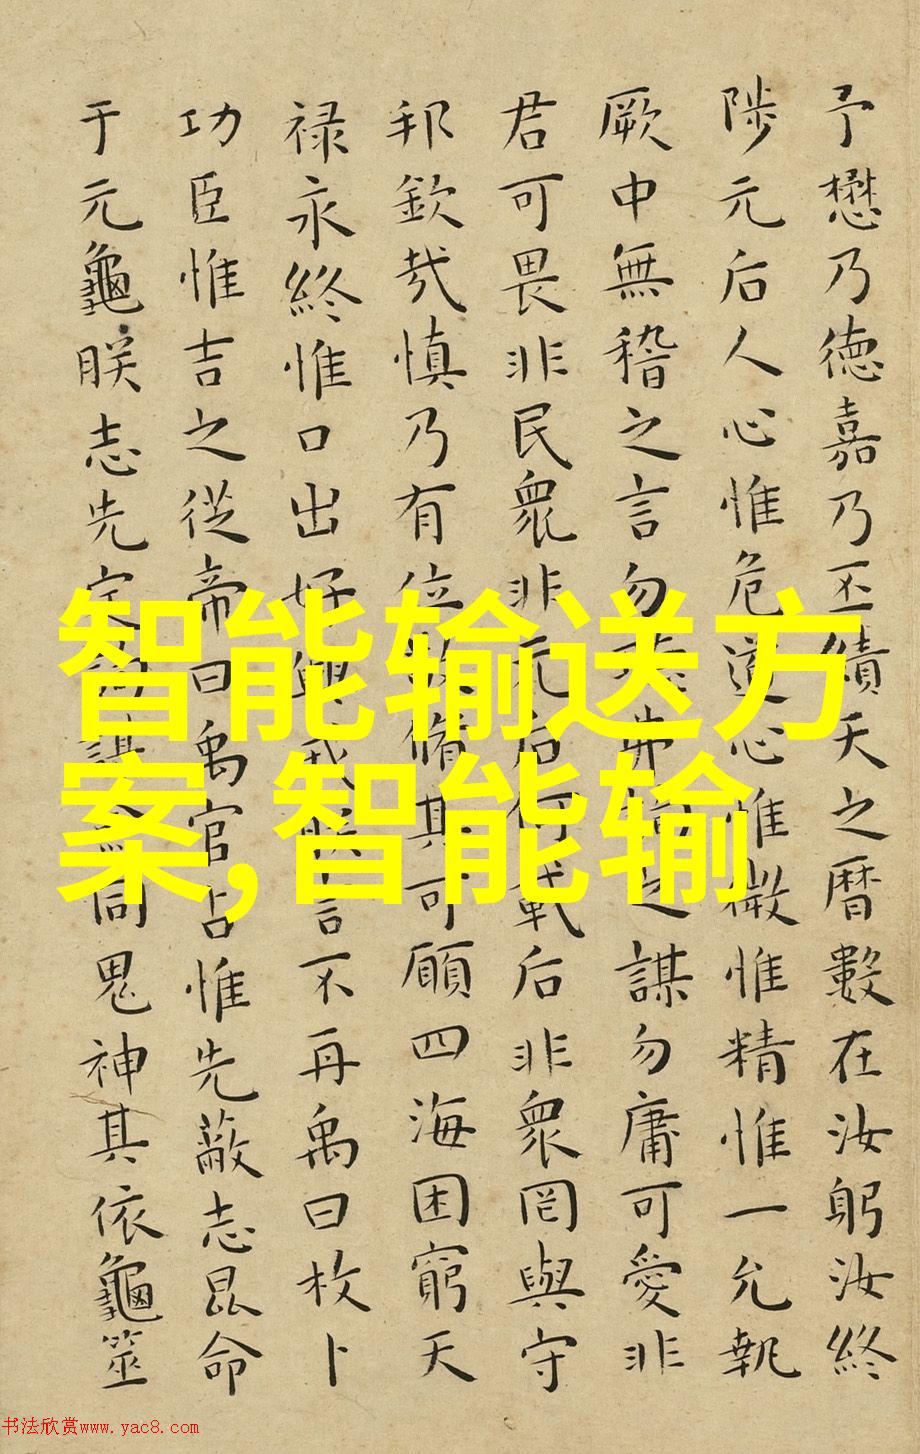 予懋乃德嘉乃丕績天之曆數在汝躬汝終
陟元后人心惟危道心惟微惟精惟一允執
厥中無稽之言勿之謀勿庸可愛非
君可畏非民眾非元后何載后非眾罔與守
邦欽哉慎乃有位敬脩其可願四海困窮天
禄永終惟口出好興戎朕言不再禹曰枚卜
功臣惟吉之從帝曰禹官占惟先蔽志昆命
于元龜朕志先定詢謀僉同鬼神其依龜筮
智能输送方
案,智能输
书法欣赏www.yac8.com